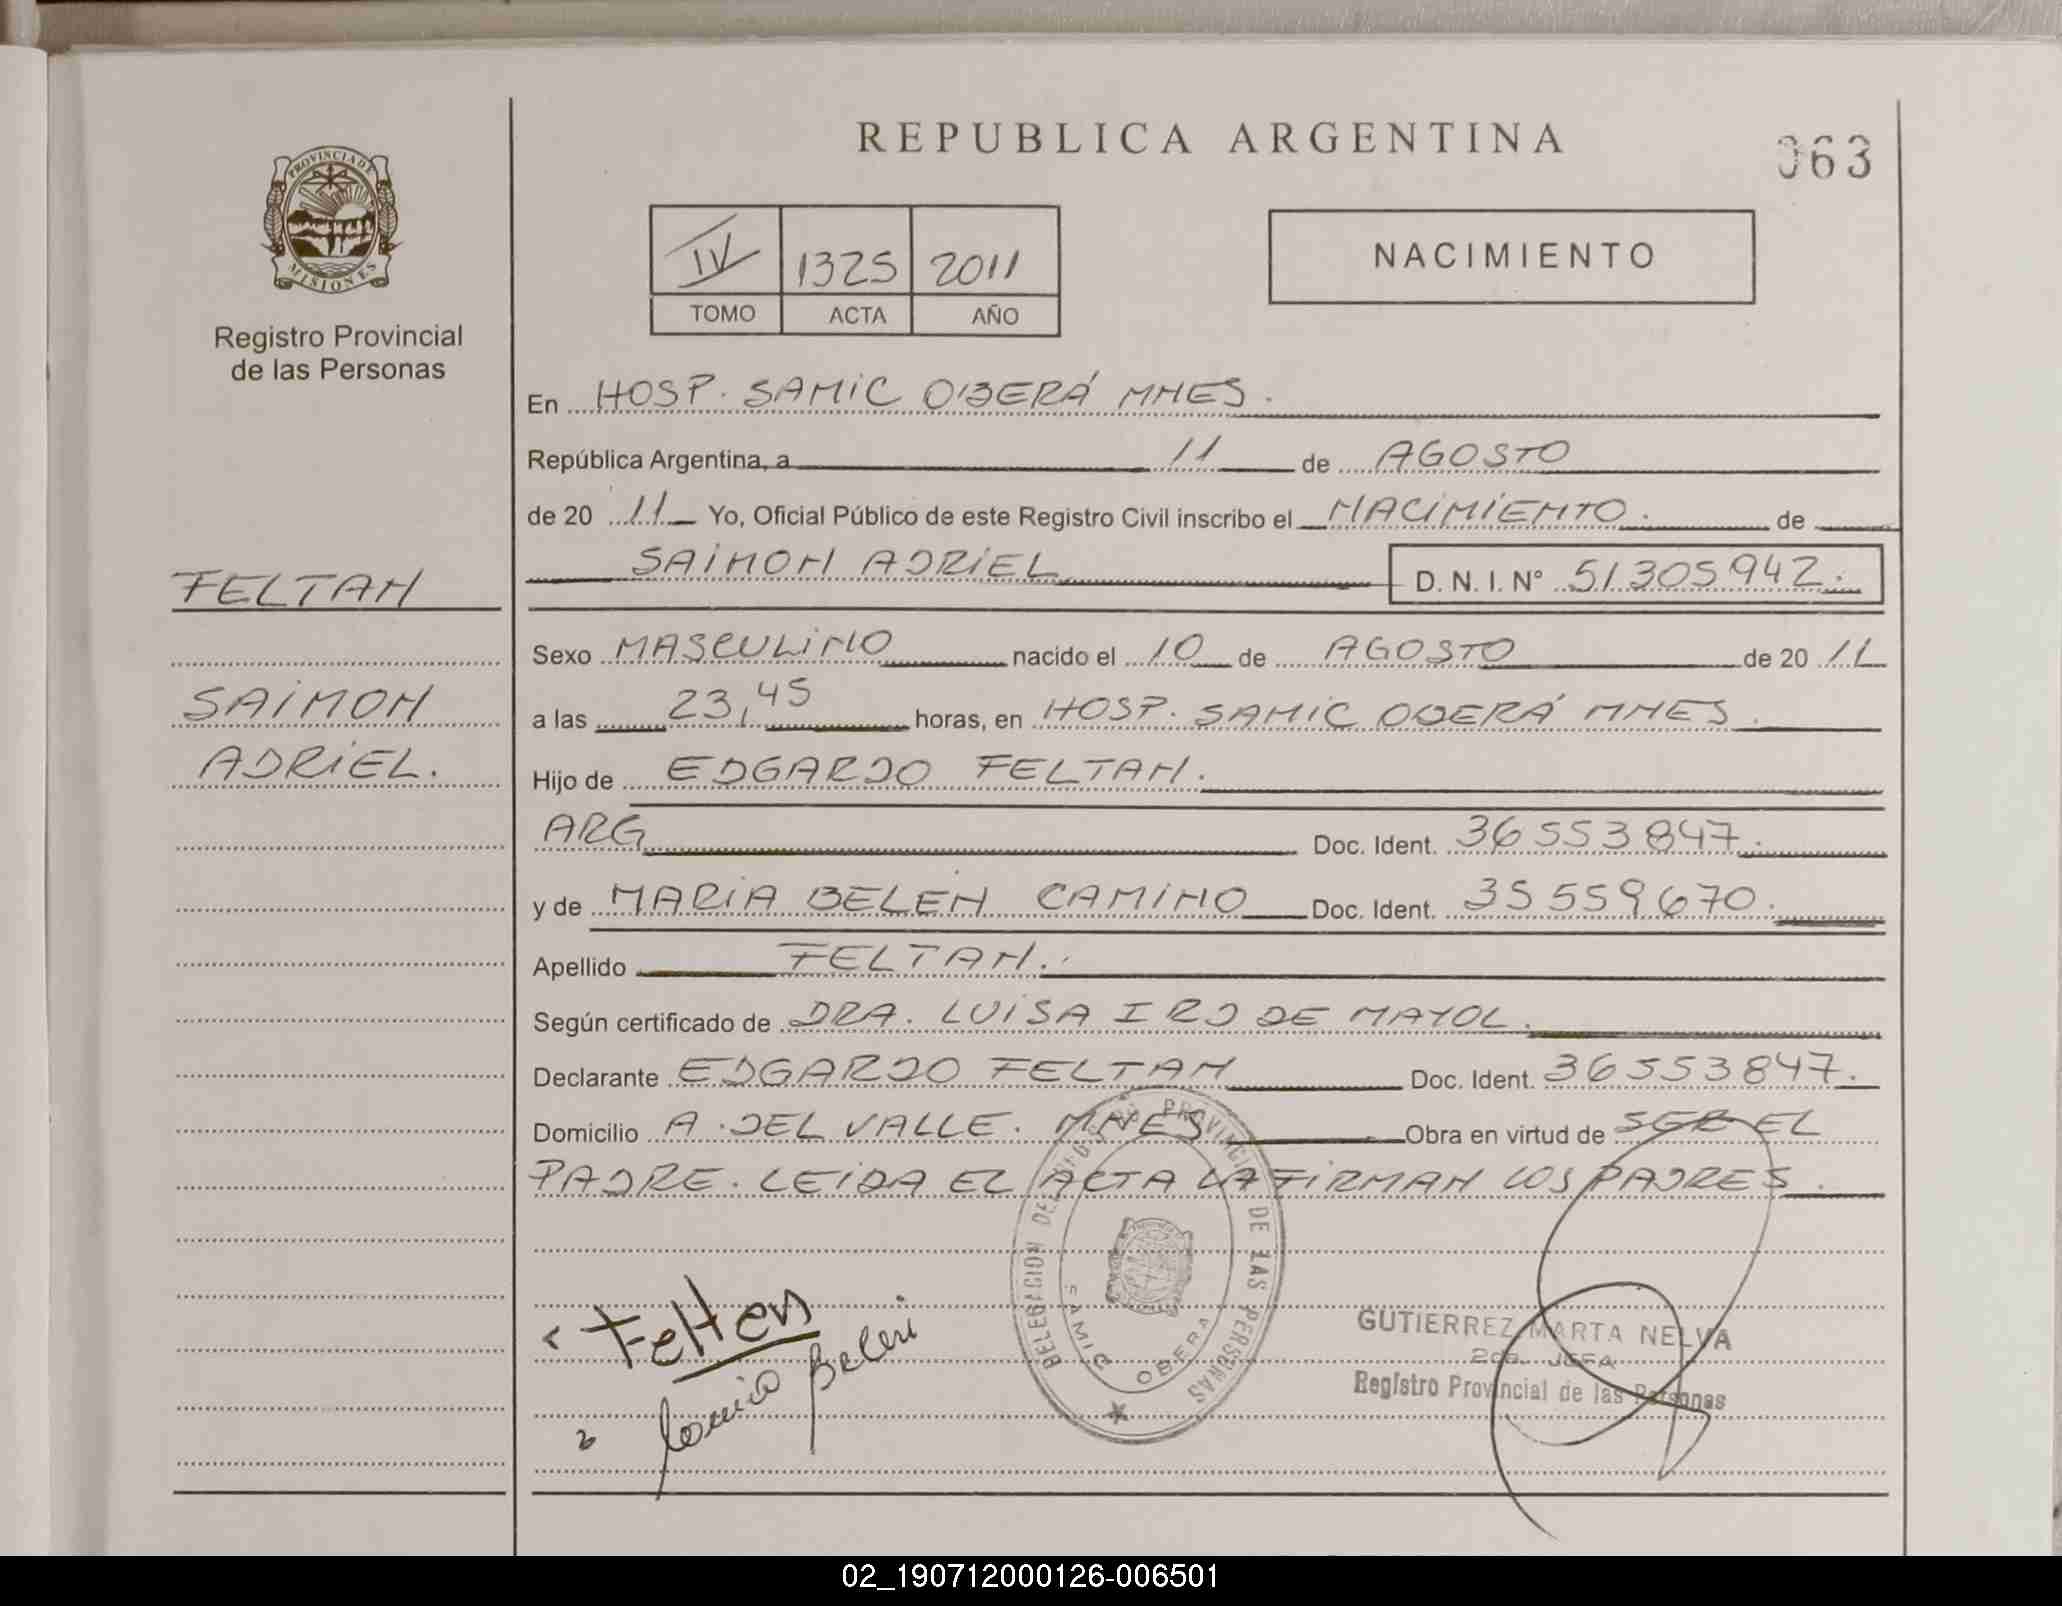 REPUBLICA ARGENTINA
063
PROVINCIA DE
MISIONES
Registro Provincial
de las Personas
IV 1325 2011
TOMO ACTA AÑO
NACIMIENTO
En HOSP. SAMIC OBERÁ MNES.
República Argentina, a 11 de AGOSTO
de 20 11 Yo, Oficial Público de este Registro Civil inscribo el NACIMIENTO. de
SAIMON ADRIEL D. N. I. N° 51.305.942.
FELTAN
SAIMON
ADRIEL.
Sexo MASCULINO nacido el 10 de AGOSTO de 20 11
a las 23,45 horas, en HOSP. SAMIC OBERÁ MNES.
Hijo de EDGARDO FELTAN.
ARG Doc. Ident. 36553847.
y de MARIA BELEN CAMINO Doc. Ident. 35559670.
Apellido FELTAN.
Según certificado de DRA. LUISA IRD DE MAYOL.
Declarante EDGARDO FELTAN Doc. Ident. 36553847.
Domicilio A. DEL VALLE. MNES Obra en virtud de SER EL
PADRE. LEIDA EL ACTA LA FIRMAN LOS PADRES.
DELEGACION DE PROVINCIAL DE LAS PERSONAS
SAMIC OBERA
Felten
Belen
GUTIERREZ MARTA NELVA
2da. JEFA
Registro Provincial de las Personas
02_190712000126-006501